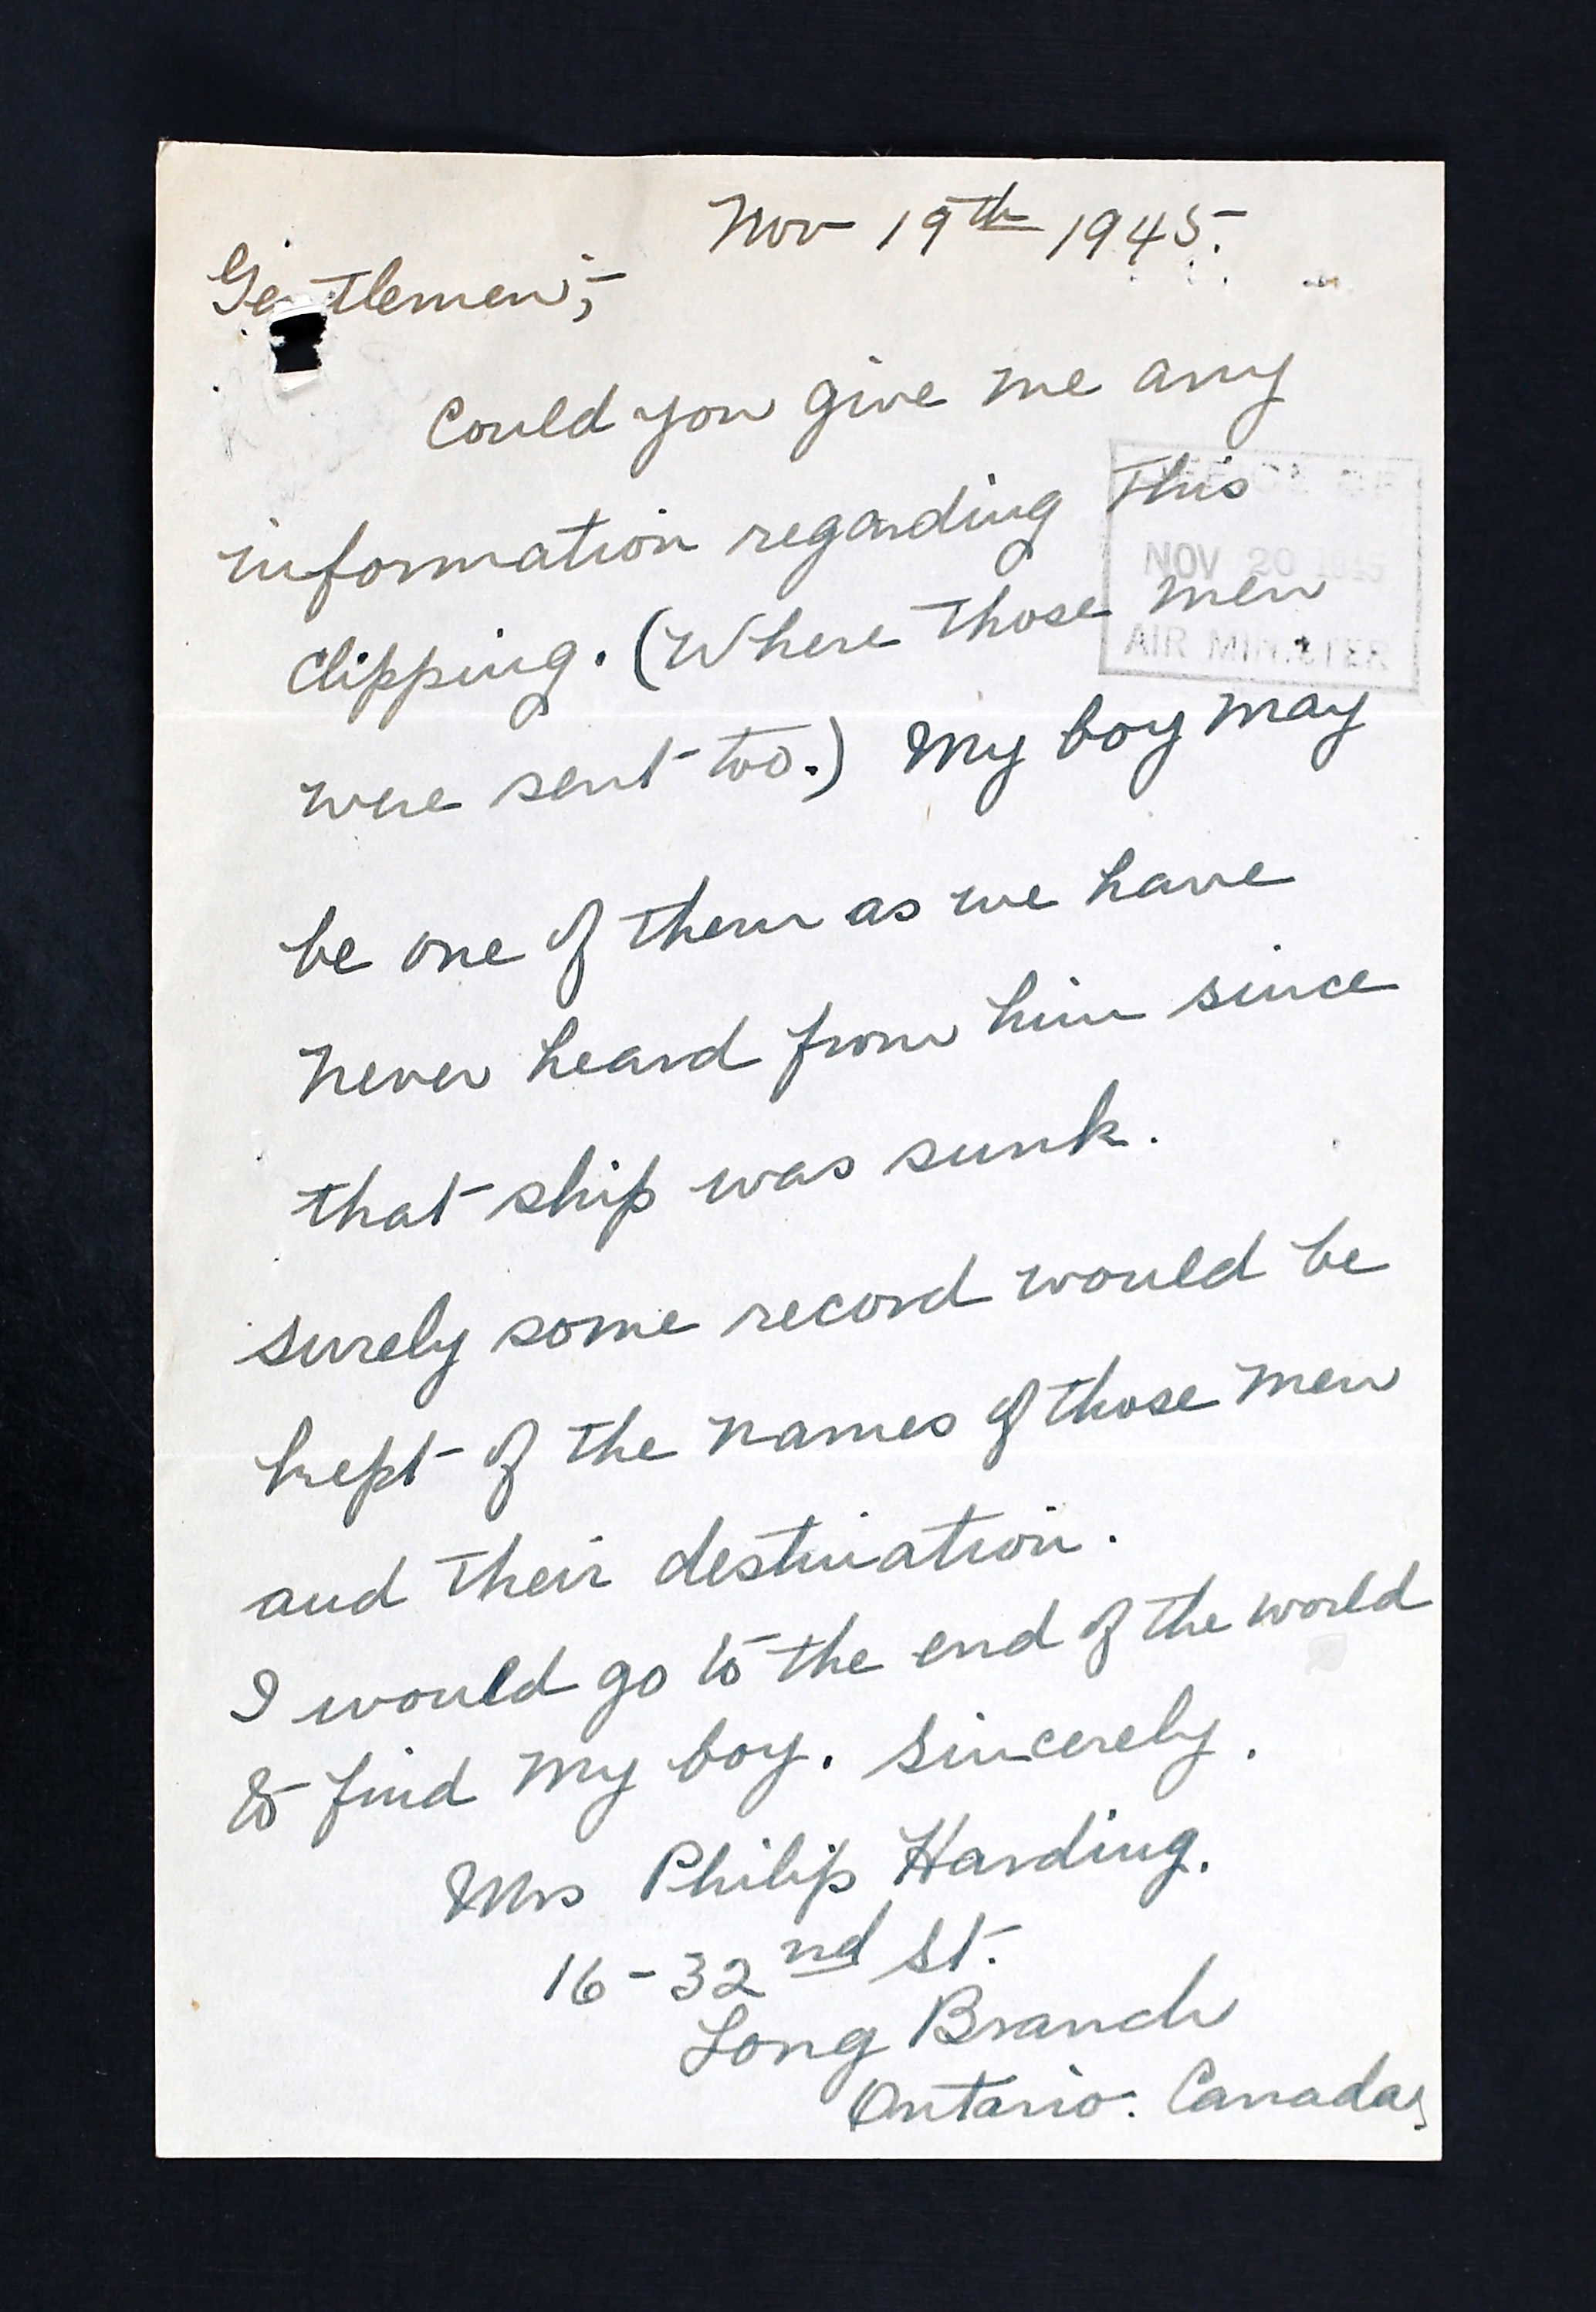 Nov 19th 1945.
Gentlemen;-
Could you give me any
information regarding this
clipping. (Where those men
were sent too.) My boy may
be one of them as we have
never heard from him since
that ship was sunk.
surely some record would be
kept of the names of those men
and their destination.
I would go to the end of the world
to find my boy. Sincerely.
Mrs Philip Harding.
16-32nd St.
Long Branch
Ontario. Canada,
OFFICE OF
NOV 20 1945
AIR MINISTER